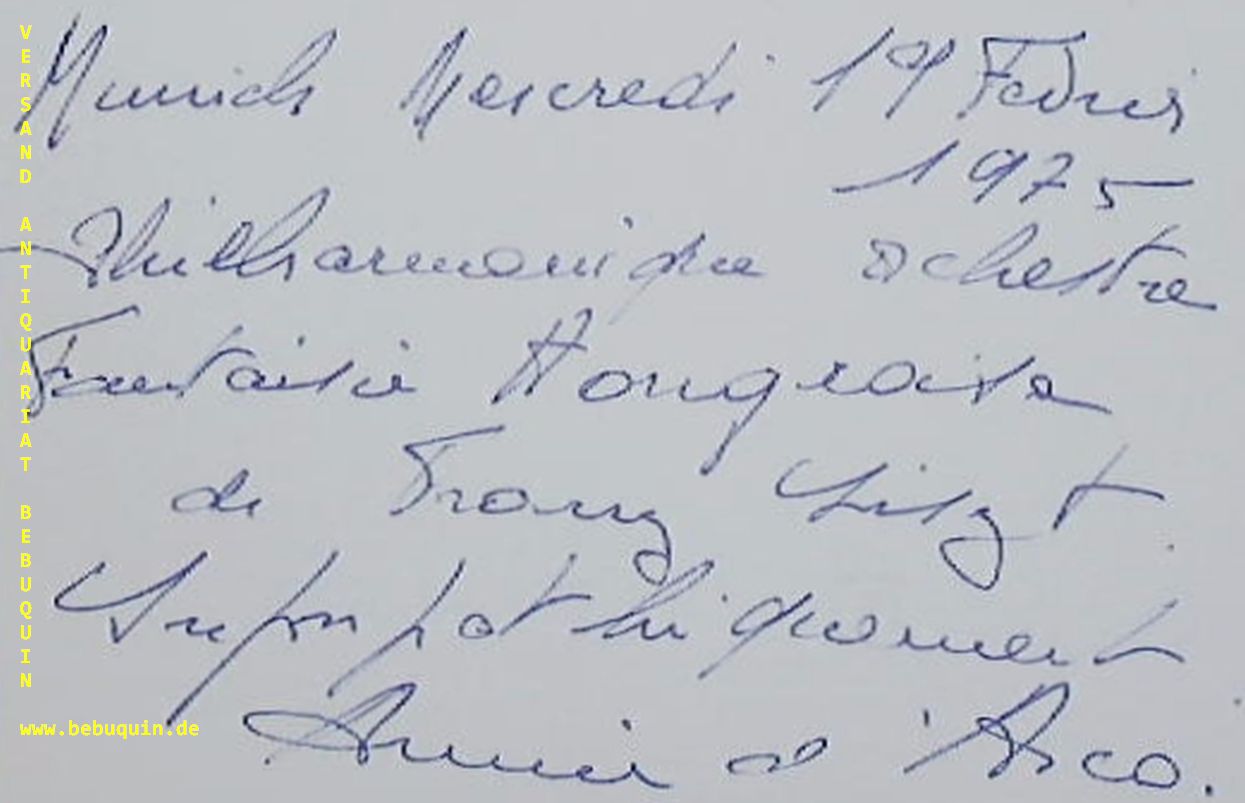 Munich Mercredi 19 Fevrier
1975
Philharmonique Ochestre
Fantaisie Hongroise
de Franz Liszt
Sympathiquement
Annie d'Arco.
VERSAND ANTIQUARIAT BEBUQUIN
www.bebuquin.de